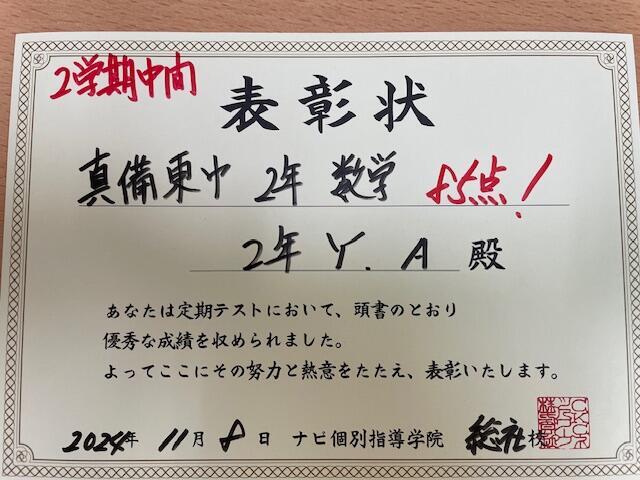 2学期中間
表彰状
真備東中 2年 数学 85点!
2年 Y. A 殿
あなたは定期テストにおいて、頭書のとおり
優秀な成績を収められました。
よってここにその努力と熱意をたたえ、表彰いたします。
2024年 11月 8日 ナビ個別指導学院 総社校